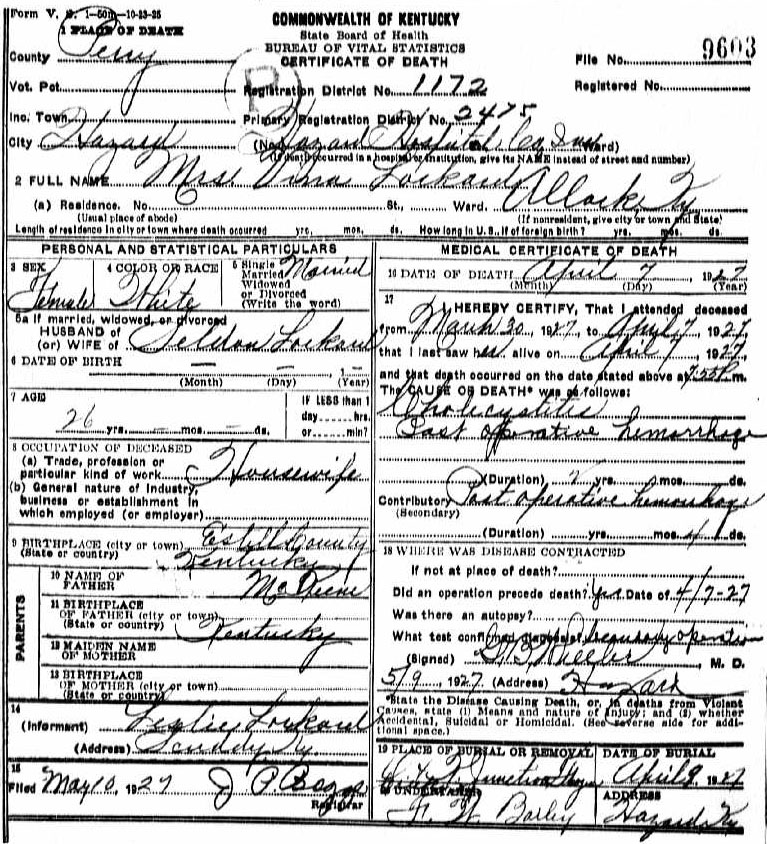 Form V. S. 1-50m-10-23-25
COMMONWEALTH OF KENTUCKY
State Board of Health
BUREAU OF VITAL STATISTICS
CERTIFICATE OF DEATH
1 PLACE OF DEATH
County Perry
File No. 9603
Vot. Pct.
Registration District No. 1172
Registered No.
Inc. Town
Primary Registration District No. 2475
City Hazard (No. Hazard Hospital Co Inc Ward)
(If death occurred in a hospital or institution, give its NAME instead of street and number)
2 FULL NAME Mrs. Lockard
(a) Residence. No. St., Ward. Allock Ky
(Usual place of abode) (If nonresident, give city or town and State)
Length of residence in city or town where death occurred yrs. mos. ds. How long in U. S., if of foreign birth? yrs. mos. ds.
PERSONAL AND STATISTICAL PARTICULARS
3 SEX Female
4 COLOR OR RACE White
5 Single Married Widowed or Divorced (Write the word) Married
5a If married, widowed, or divorced
HUSBAND of
(or) WIFE of Seldon Lockard
6 DATE OF BIRTH — — , 1 —
(Month) (Day) (Year)
7 AGE
26 yrs. — mos. — ds.
IF LESS than 1
day hrs.
or min?
8 OCCUPATION OF DECEASED
(a) Trade, profession or
particular kind of work Housewife
(b) General nature of industry,
business or establishment in
which employed (or employer)
9 BIRTHPLACE (city or town) Estill County
(State or country) Kentucky
PARENTS
10 NAME OF
FATHER
11 BIRTHPLACE
OF FATHER (city or town)
(State or country) Kentucky
12 MAIDEN NAME
OF MOTHER
13 BIRTHPLACE
OF MOTHER (city or town)
(State or country)
14
(Informant) Leslie Lockard
(Address) Scuddy Ky
15
Filed May 10, 1927 J P Boggs
Registrar
MEDICAL CERTIFICATE OF DEATH
16 DATE OF DEATH April 7 1927
(Month) (Day) (Year)
17
I HEREBY CERTIFY, That I attended deceased
from March 30, 1927, to April 7, 1927,
that I last saw her alive on April 7, 1927,
and that death occurred on the date stated above at 7.55 P. m.
The CAUSE OF DEATH* was as follows:
Cholecystitis
Post operative hemorrhage
(Duration) 2 yrs. mos. ds.
Contributory Post operative hemorrhage
(Secondary)
(Duration) yrs. mos. 1 ds.
18 WHERE WAS DISEASE CONTRACTED
If not at place of death?
Did an operation precede death? yes Date of 4/7-27
Was there an autopsy?
What test confirmed diagnosis? operation
(Signed) , M. D.
5/9, 1927 (Address) Hazard
*State the Disease Causing Death, or, in deaths from Violent
Causes, state (1) Means and nature of Injury; and (2) whether
Accidental, Suicidal or Homicidal. (See reverse side for addi-
tional space.)
19 PLACE OF BURIAL OR REMOVAL Junction
DATE OF BURIAL April 9 1927
20 UNDERTAKER
ADDRESS Hazard Ky